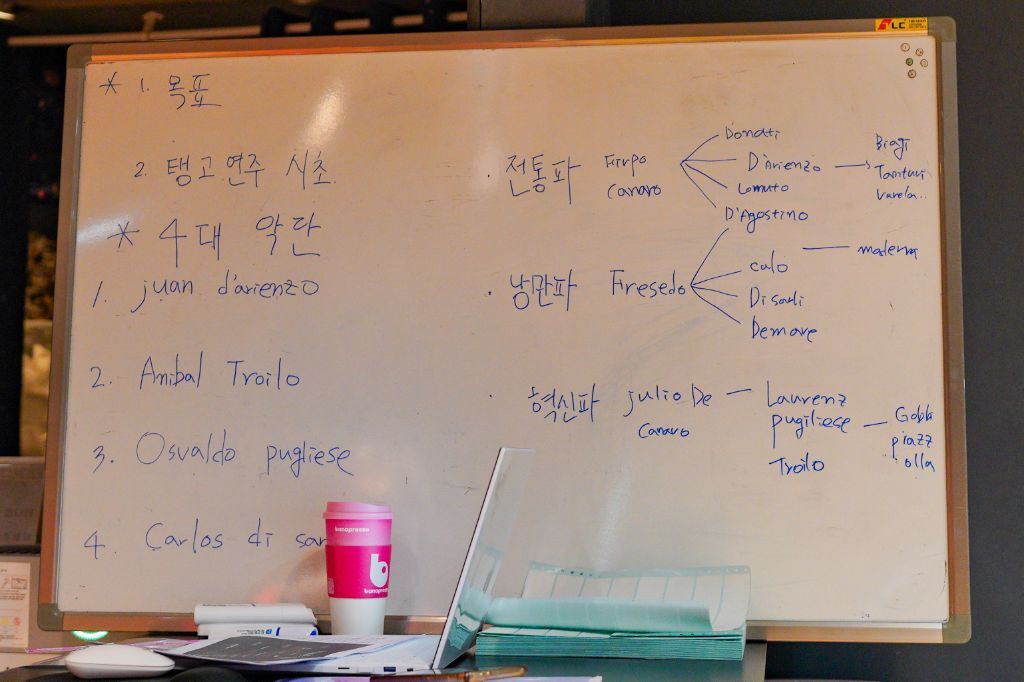 * 1. 목표
2. 탱고 연주 시초.
* 4대 악단
1. juan d'arienzo
2. Anibal Troilo
3. Osvaldo pugliese
4. Carlos di sar
· 전통파 Firpo
Canaro
Donati
D'Arienzo → Biagi
Tanturi
Varela..
Lomuto
D'Agostino
· 낭만파 Firesedo
calo — maderna
Di sarli
Demare
· 혁신파 julio De
Canaro
— Laurenz
pugiliese
Troilo
— Gobbi
piazz
olla
LC
banapresso
b
banapresso